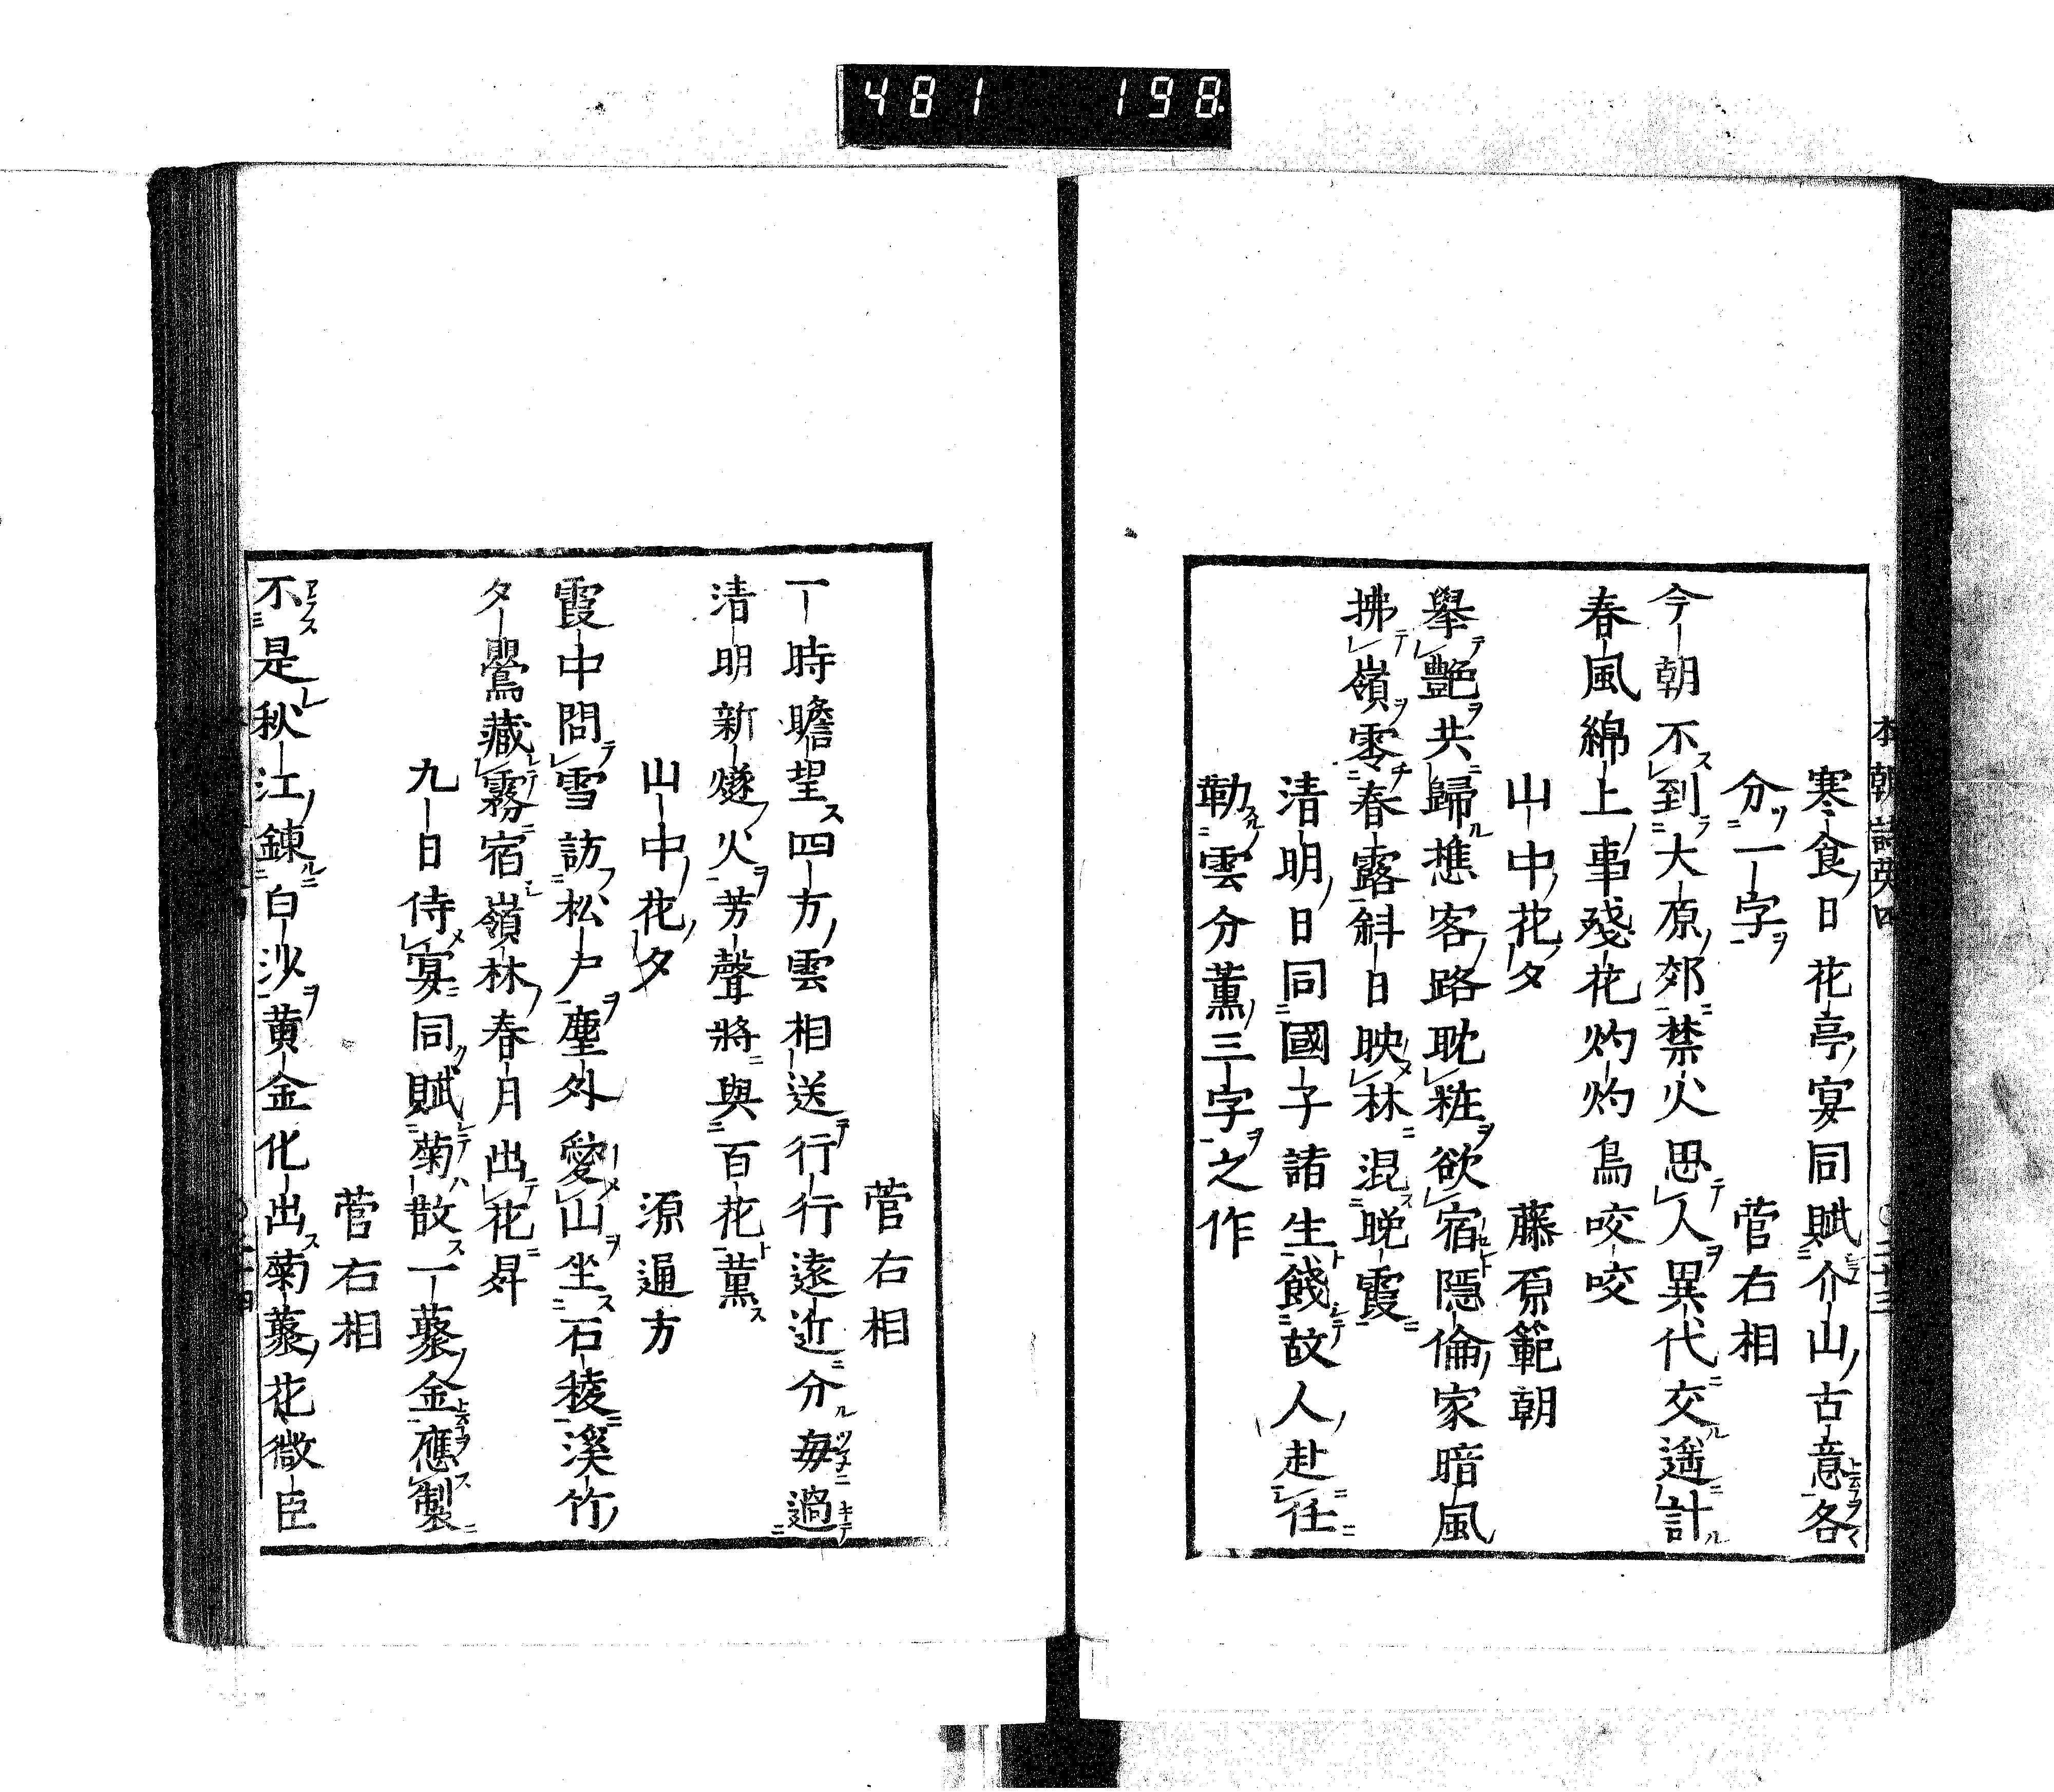 481 198
本朝詩英四
二十三
寒食日花亭宴同賦介山古意各
分一字 菅右相
今朝不到大原郊禁火思人異代交遥計
春風綿上事殘花灼灼鳥咬咬
山中花夕 藤原範朝
擧艶共歸樵客路耽粧欲宿隠倫家暗風
拂嶺零春露斜日映林混晩霞
清明日同國子諸生餞故人赴任
勒雲分薫三字之作
菅右相
一時瞻望四方雲相送行行遠近分毎過
清明新燧火芳聲將與百花薫
山中花夕 源通方
霞中問雪訪松戸塵外愛山坐石稜溪竹
夕鸎藏霧宿嶺林春月出花昇
九日侍宴同賦菊散一叢金應製
菅右相
不是秋江錬白沙黄金化出菊叢花微臣